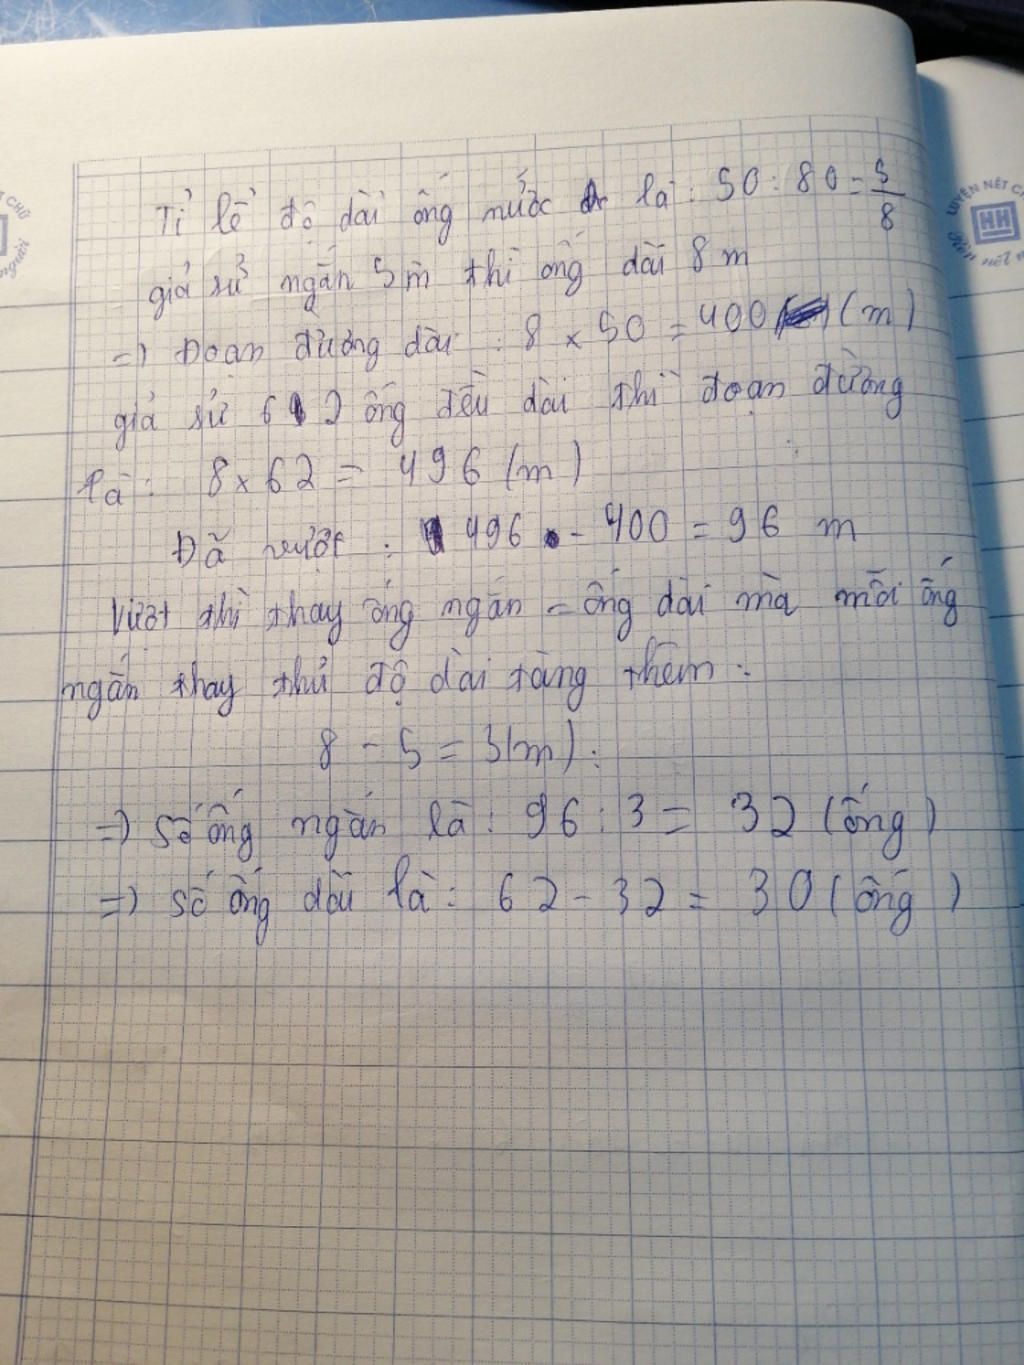 Tỉ lể độ dài ống nước là : 50 : 80 = 5/8
giả sử ngắn 5m thì ống dài 8 m
=> Đoạn đường dài : 8 x 50 = 400 (m)
giả sử 62 ống đều dài thì đoạn đường
là : 8 x 62 = 496 (m)
Đã vượt : 496 - 400 = 96 m
Vượt thì thay ống ngắn = ống dài mà mỗi ống
ngắn thay thử độ dài tăng thêm :
8 - 5 = 3(m) :
=> Số ống ngắn là : 96 : 3 = 32 (ống)
=> số ống dài là : 62 - 32 = 30 (ống)
LUYỆN NÉT CHỮ
HH
người